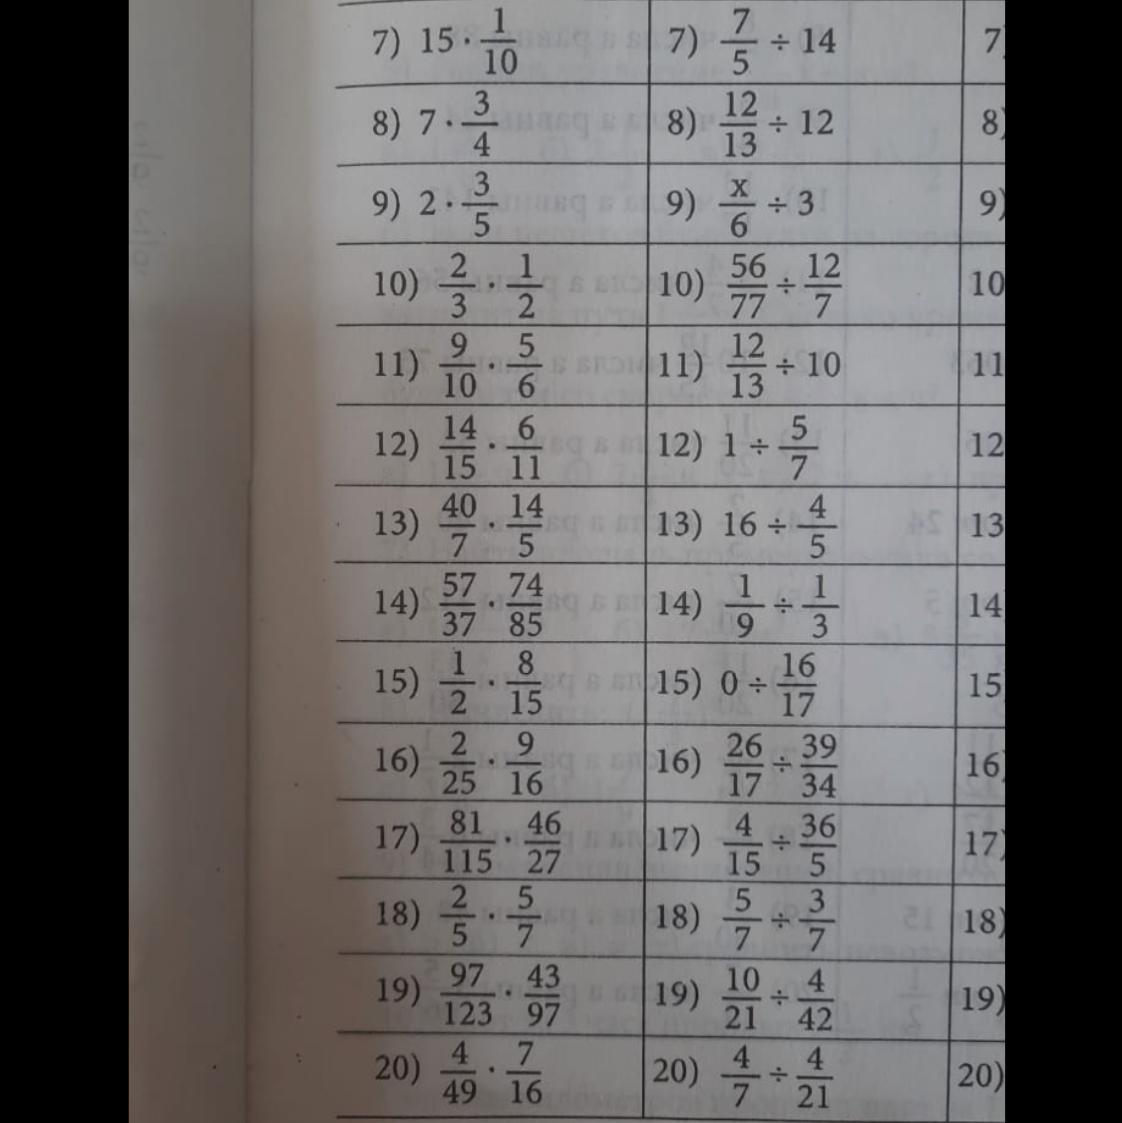 7) 15 · 1/10 7) 7/5 ÷ 14 7)
8) 7 · 3/4 8) 12/13 ÷ 12 8)
9) 2 · 3/5 9) x/6 ÷ 3 9)
10) 2/3 · 1/2 10) 56/77 ÷ 12/7 10
11) 9/10 · 5/6 11) 12/13 ÷ 10 11
12) 14/15 · 6/11 12) 1 ÷ 5/7 12
13) 40/7 · 14/5 13) 16 ÷ 4/5 13
14) 57/37 · 74/85 14) 1/9 ÷ 1/3 14
15) 1/2 · 8/15 15) 0 ÷ 16/17 15
16) 2/25 · 9/16 16) 26/17 ÷ 39/34 16
17) 81/115 · 46/27 17) 4/15 ÷ 36/5 17)
18) 2/5 · 5/7 18) 5/7 ÷ 3/7 18)
19) 97/123 · 43/97 19) 10/21 ÷ 4/42 19)
20) 4/49 · 7/16 20) 4/7 ÷ 4/21 20)